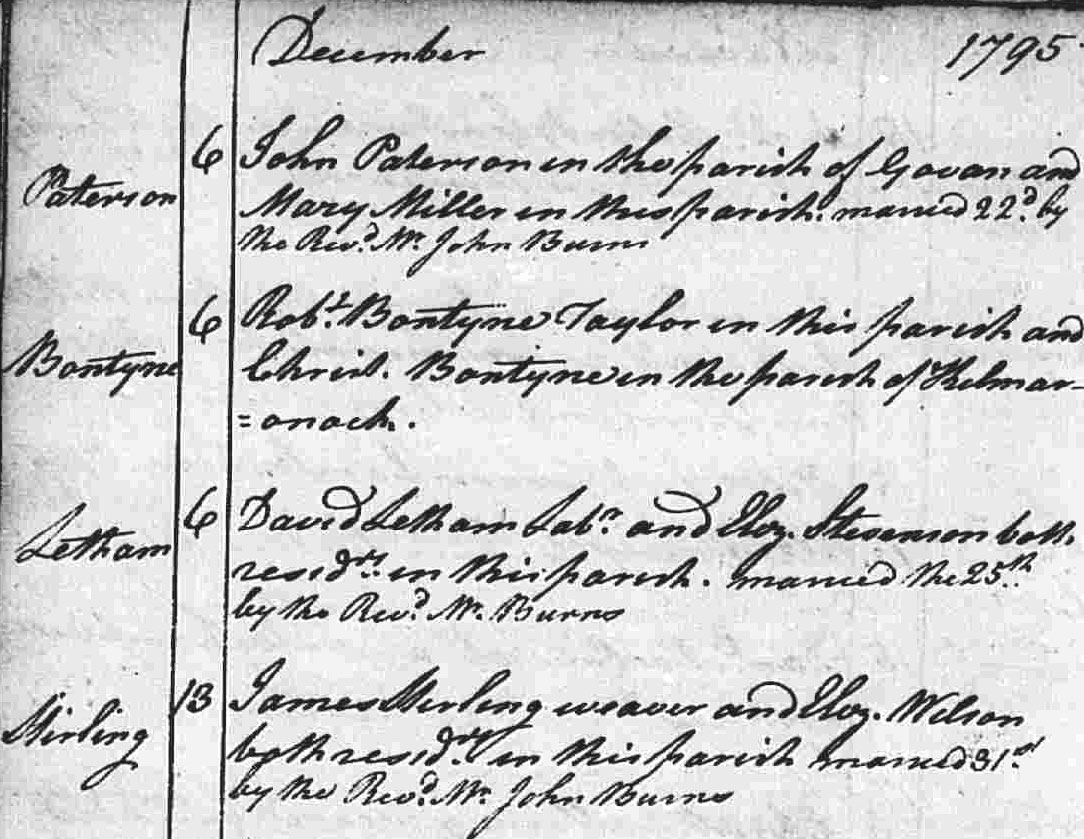 December 1795
Paterson 6 John Paterson in the parish of Govan and
Mary Miller in this parish. married 22d. by
the Revd. Mr. John Burns
Bontyne 6 Robt. Bontyne Taylor in this parish and
Christ. Bontyne in the parish of Kilmar-
=onock.
Letham 6 David Letham Labr. and Eliz. Stevenson both
residrs. in this parish. married the 25th.
by the Revd. Mr. Burns
Stirling 13 James Stirling weaver and Eliz. Wilson
both residrs. in this parish married 31st.
by the Revd. Mr. John Burns